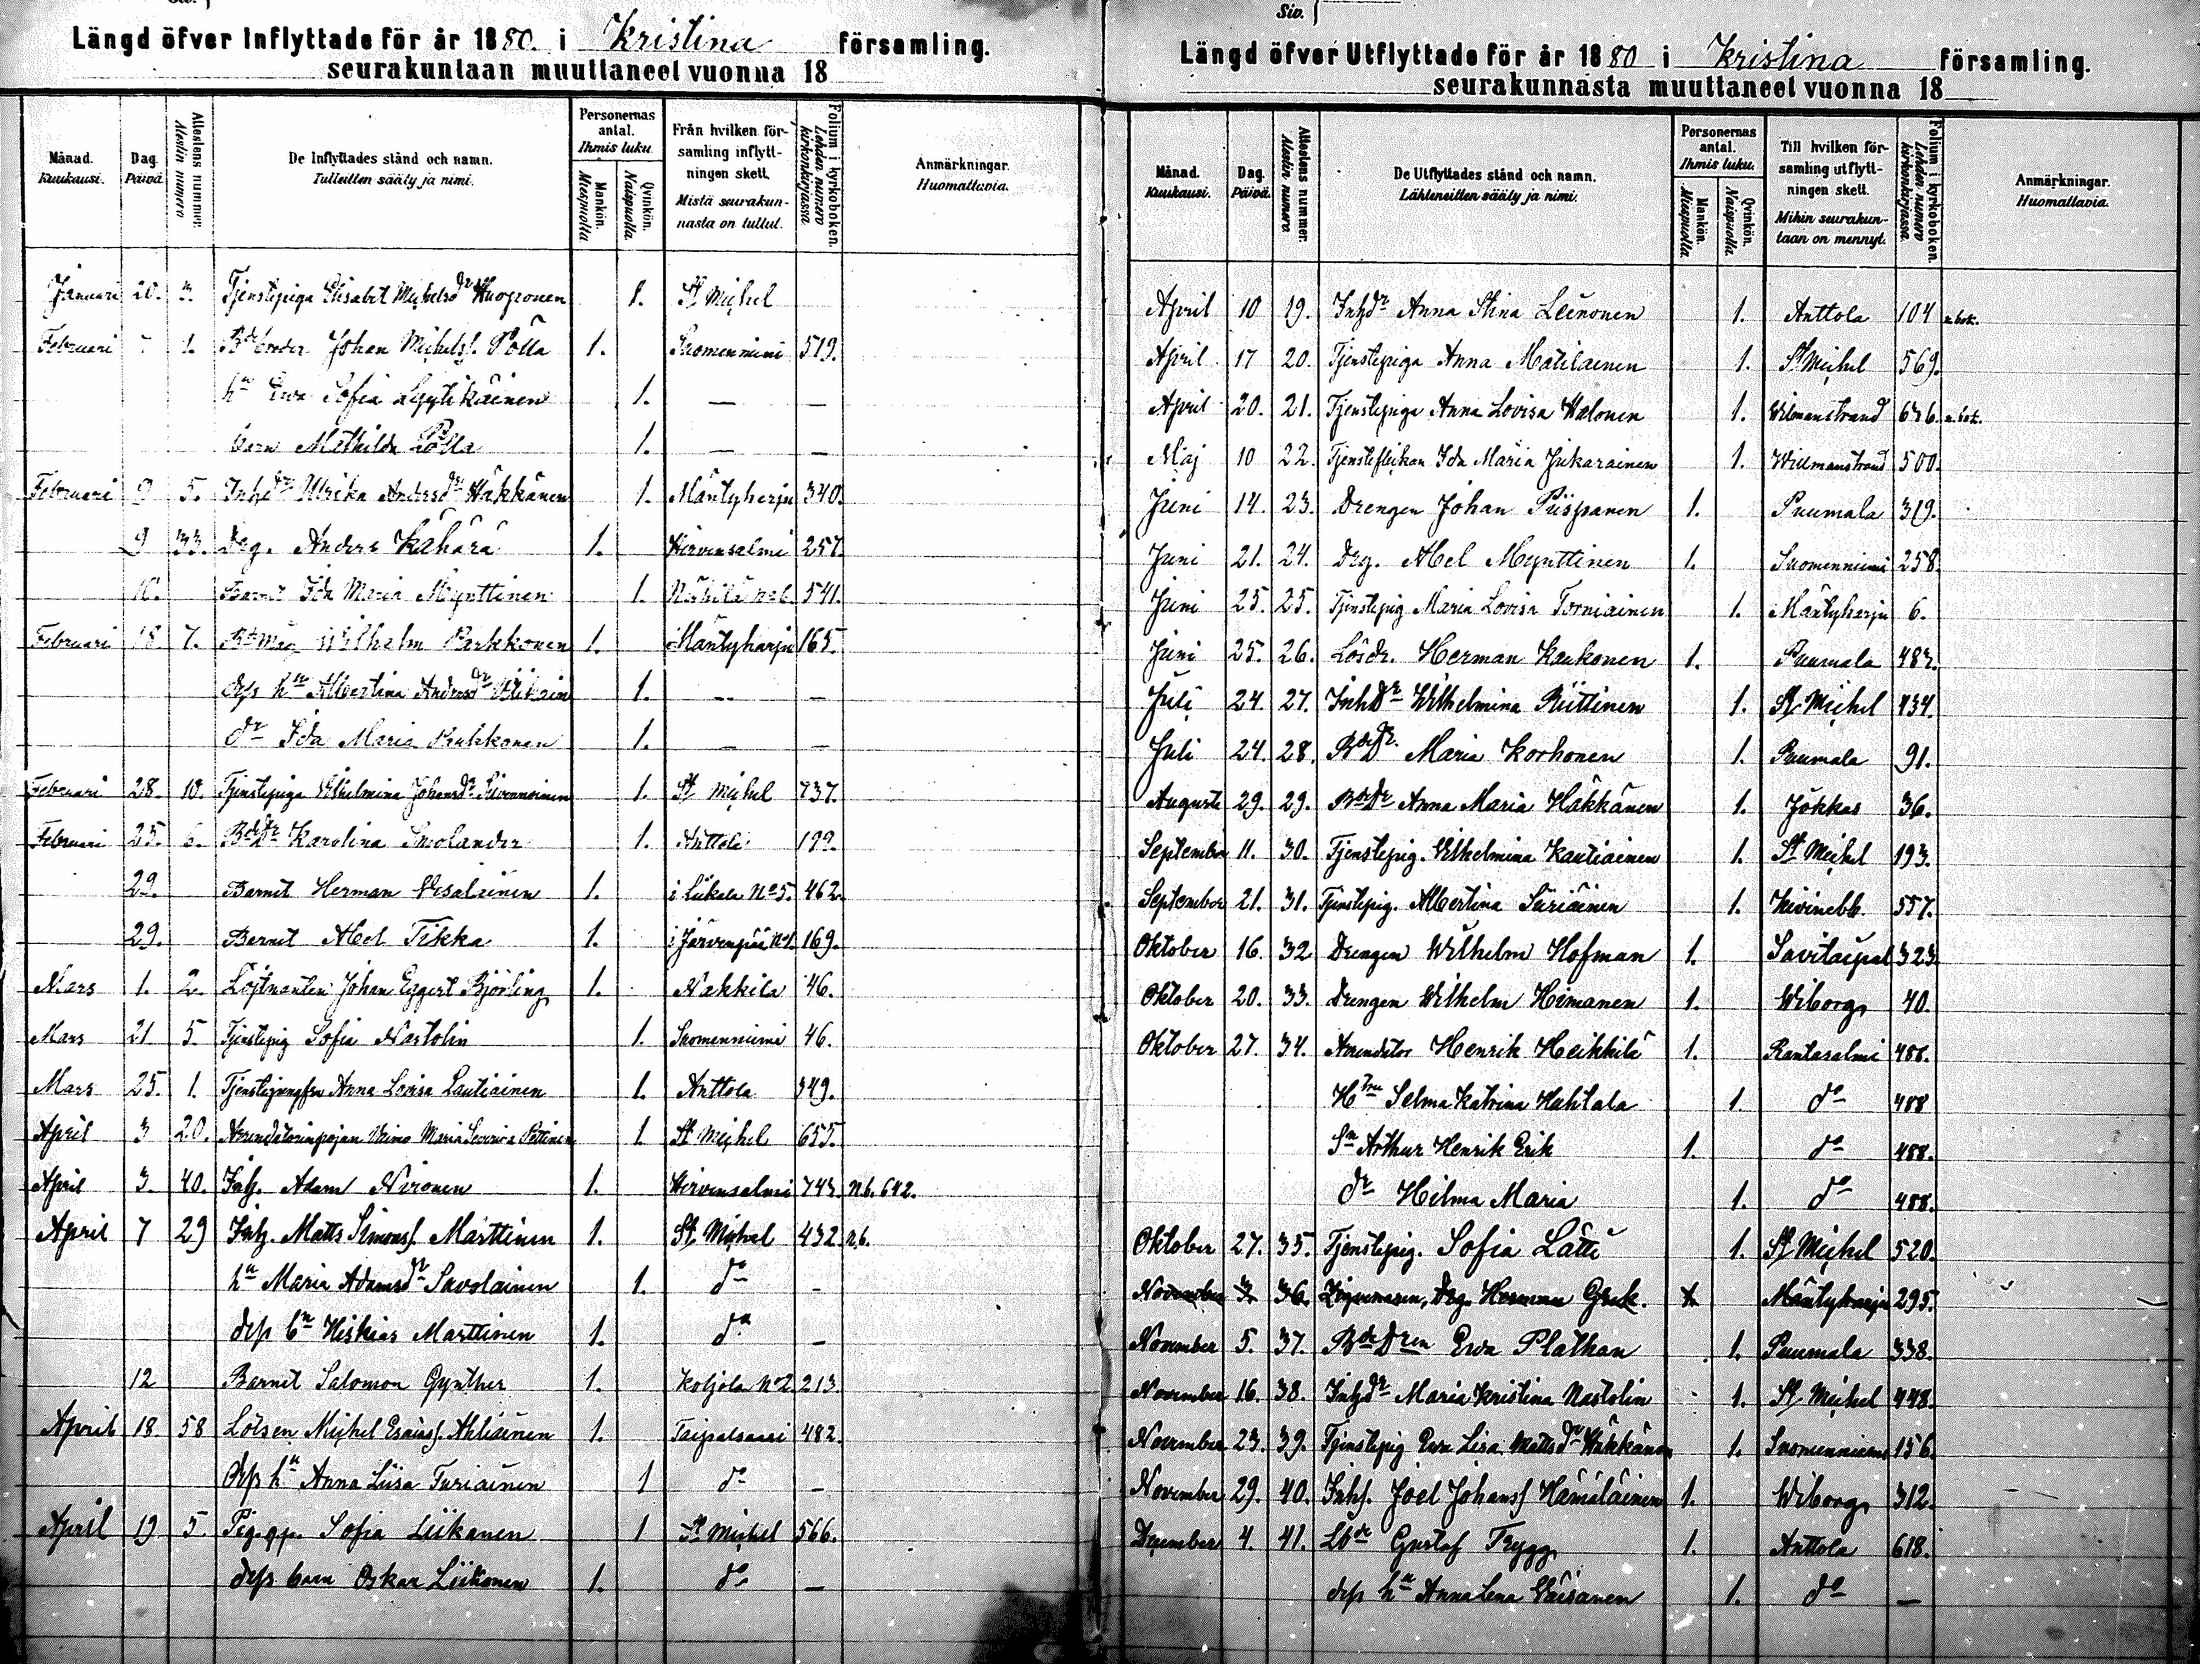 Siv.
Längd öfver Inflyttade för år 1880. i Kristina församling.
seurakuntaan muuttaneet vuonna 18
Månad. Kuukausi.
Dag. Päivä.
Attestens nummer. Alestin numero
De Inflyttades stånd och namn. Tulleitten sääty ja nimi.
Personernas antal. Ihmis luku.
Mankön. Miespuolia
Qvinkön. Naispuolia.
Från hvilken församling inflyttningen skett. Mistä seurakunnasta on tullut.
Folium i kyrkoboken. Lehden numero kirkonkirjassa
Anmärkningar. Huomattavia.
Januari 20. 3. Tjenstepiga Elisabet Michelsdr Huoponen 1. St Michel
Februari 1. Johan Michelss. Pölla 1. Suomenniemi 519.
hu Ewa Sofia Lyytikäinen 1. — —
barn Mathilda Pölla 1. — —
Februari 9 5. Inhdr Ulrika Andersdr Häkkänen 1. Mäntyharju 340.
9 33. Drg. Anders Kähärä 1. Hirvensalmi 257.
Barnet Ida Maria Mynttinen 1. 541.
Februari 18. 7. Wilhelm Parkkonen 1. Mäntyharju 165.
dess hu Albertina Andersdr 1. — —
dr Ida Maria Parkkonen 1. — —
Februari 28. 10. Tjenstepiga Wilhelmina Johansdr Silvennoinen 1. St Michel 737.
Februari 25. 6. BdeDr Karolina Smolander 1. Anttola 199.
29. Barnet Herman Wesalainen 1. i Liikala No 5. 462.
29. Barnet Abel Tikka 1. i Järvenpää No 1. 169.
Mars 1. 2. Löjtnanten Johan Eggert Björling 1. Nakkila 46.
Mars 21 5. Tjenstepig Sofia Nastolin 1. Suomenniemi 46.
Mars 25. 1. Tjenstejungfru Anna Lovisa Lautiainen 1. Anttola 349.
April 3 20. Maria Severina 1. St Michel 655.
April 3. 40. Inh. Adam Nironen 1. Hirvensalmi 743 n.b. 642.
April 7 29 Inh. Matts Simonss. Marttinen 1. St. Michel 432 n.b.
hu Maria Adamsdr Savolainen 1. do —
dess Hiskias Marttinen 1. do —
12 Barnet Salomon Gynther 1. Koljola No 2 213
April 18. 58 Lotsen Michel Esaiass. Ahtiainen 1. Taipalsaari 482.
Dess hu Anna Liisa Turiainen 1 do —
April 19 5. Sofia Liikanen 1 St Michel 566.
dess barn Oskar Liikanen 1. do —
Siv.
Längd öfver Utflyttade för år 1880 i Kristina församling.
seurakunnasta muuttaneet vuonna 18
Månad. Kuukausi.
Dag. Päivä.
Attestens nummer. Alestin numero
De Utflyttades stånd och namn. Lähteneitten sääty ja nimi.
Personernas antal. Ihmis luku.
Mankön. Miespuolia.
Qvinkön. Naispuolia.
Till hvilken församling utflyttningen skett. Mihin seurakuntaan on mennyt.
Folium i kyrkoboken. Lehden numero kirkonkirjassa.
Anmärkningar. Huomattavia.
April 10 19. Inhdr Anna Stina Leinonen 1. Anttola 104 n.bok.
April 17 20. Tjenstepiga Anna Matilainen 1. St Michel 569.
April 20. 21. Tjenstepiga Anna Lovisa Halonen 1. Wilmanstrand 676. n.bok.
Maj 10 22. Tjensteflickan Ida Maria Jukarainen 1. Willmanstrand 500.
Juni 14. 23. Drengen Johan Piispanen 1. Puumala 319.
Juni 21. 24. Drg. Abel Mynttinen 1. Suomenniemi 258.
Juni 25. 25. Tjenstepig Maria Lovisa Torniainen 1. Mäntyharju 6.
Juni 25. 26. Lösdr. Herman Kaukonen 1. Puumala 482.
Juli 24. 27. InhDr Wilhelmina Riittinen 1. St. Michel 434.
Juli 24. 28. BdeDr. Maria Korhonen 1. Puumala 91.
Augusti 29. 29. BdeDr Anna Maria Häkkänen 1. Jokkas 36.
September 11. 30. Tjenstepig. Wilhelmina Kautiainen 1. St Michel 193.
September 21. 31. Tjenstepig. Albertina Siiriäinen 1. Kivinebb. 557.
Oktober 16. 32 Drengen Wilhelm Hofman 1. Savitaipal 323.
Oktober 20. 33. Drengen Wilhelm Heimanen 1. Wiborgs 40.
Oktober 27. 34. Arendator Henrik Heikkilä 1. Rantasalmi 488.
Htru Selma Katrina Hahtala 1. do 488
Sn Arthur Henrik Erik 1. do 488.
dr Hilma Maria 1. do 488.
Oktober 27. 35. Tjenstepig. Sofia Lätti 1. St Michel 520.
November 3. 36. Drg. Herman Grek. 1. Mäntyharju 295.
November 5. 37. BdeDren Ewa Plathan 1. Puumala 338.
November 16. 38. Inhdr Maria Kristina Nastolin 1. St Michel 448.
November 23. 39. Tjenstepig Ewa Lisa Mattsdr Häkkänen 1. Suomenniemi 156.
November 29. 40. Inhs. Joel Johanss Hämäläinen 1. Wiborgs 312.
December 4. 41. Gustaf Trygg 1. Anttola 618.
dess hu Anna Lena Väisänen 1. do —